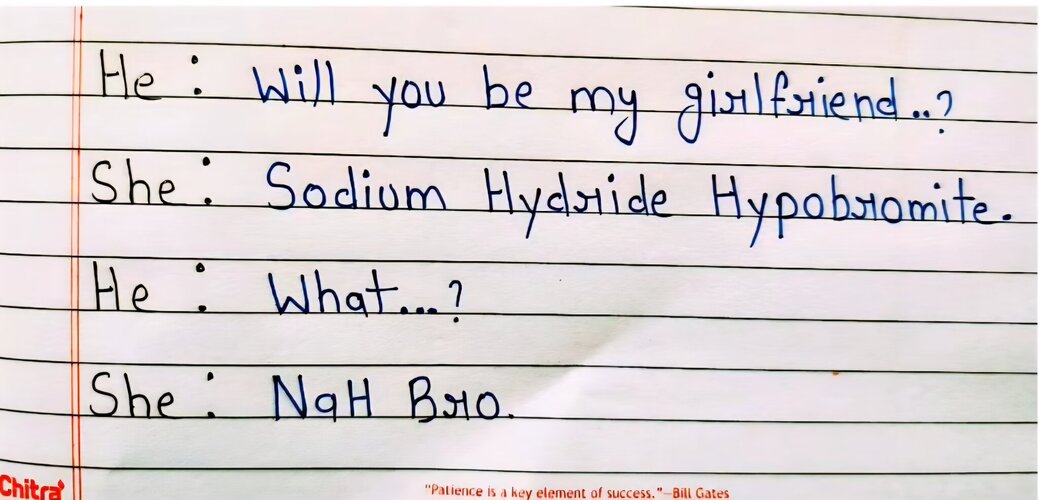 He : Will you be my girlfriend..?
She : Sodium Hydride Hypobromite.
He : What...?
She : NaH Bro.
Chitra
"Patience is a key element of success."—Bill Gates